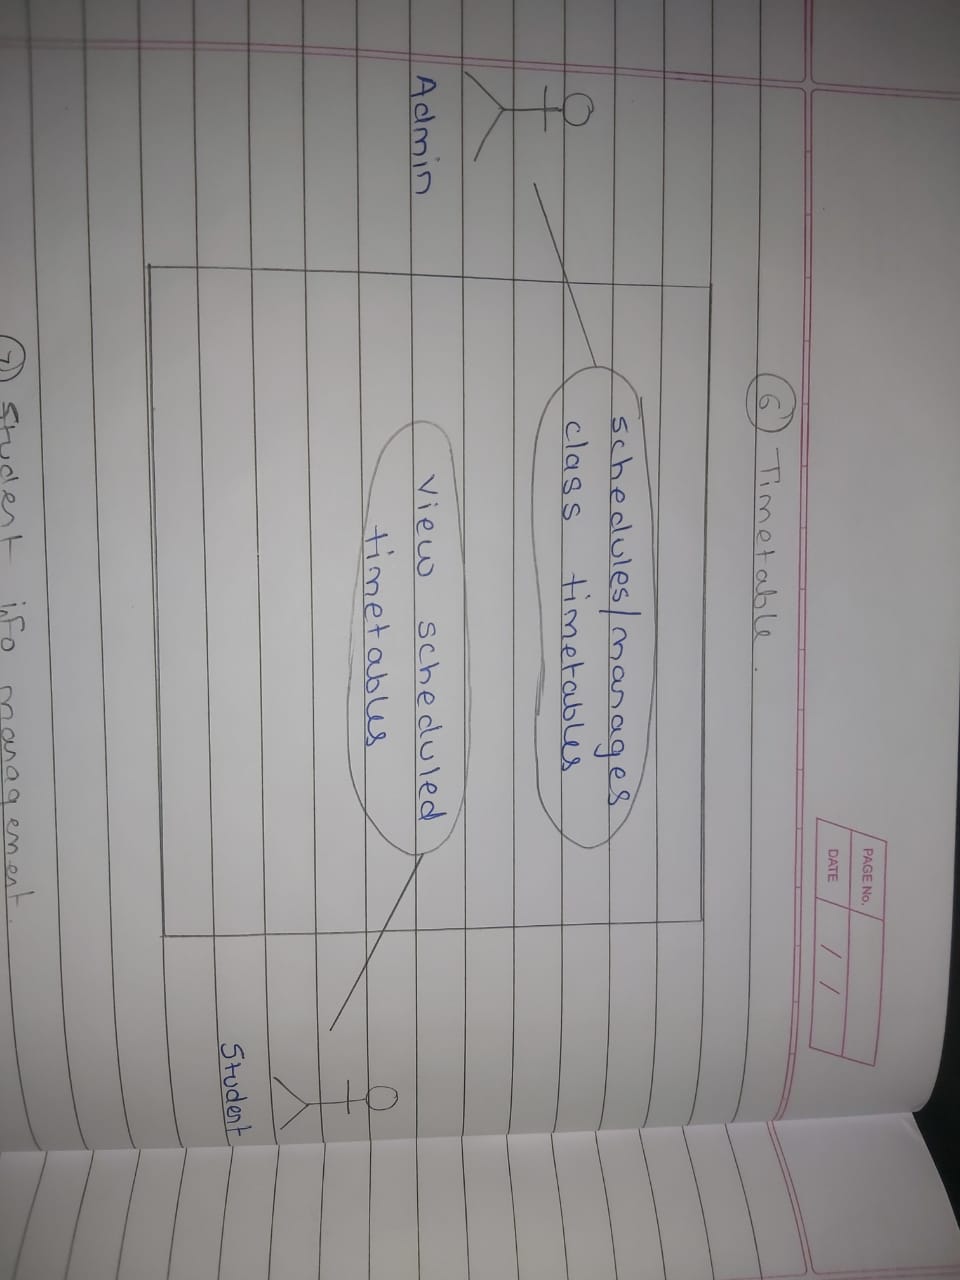 PAGE No.
DATE / /
6) Timetable.
schedules/manages
class timetables
Admin
view scheduled
timetables
Student
7) Student info management.